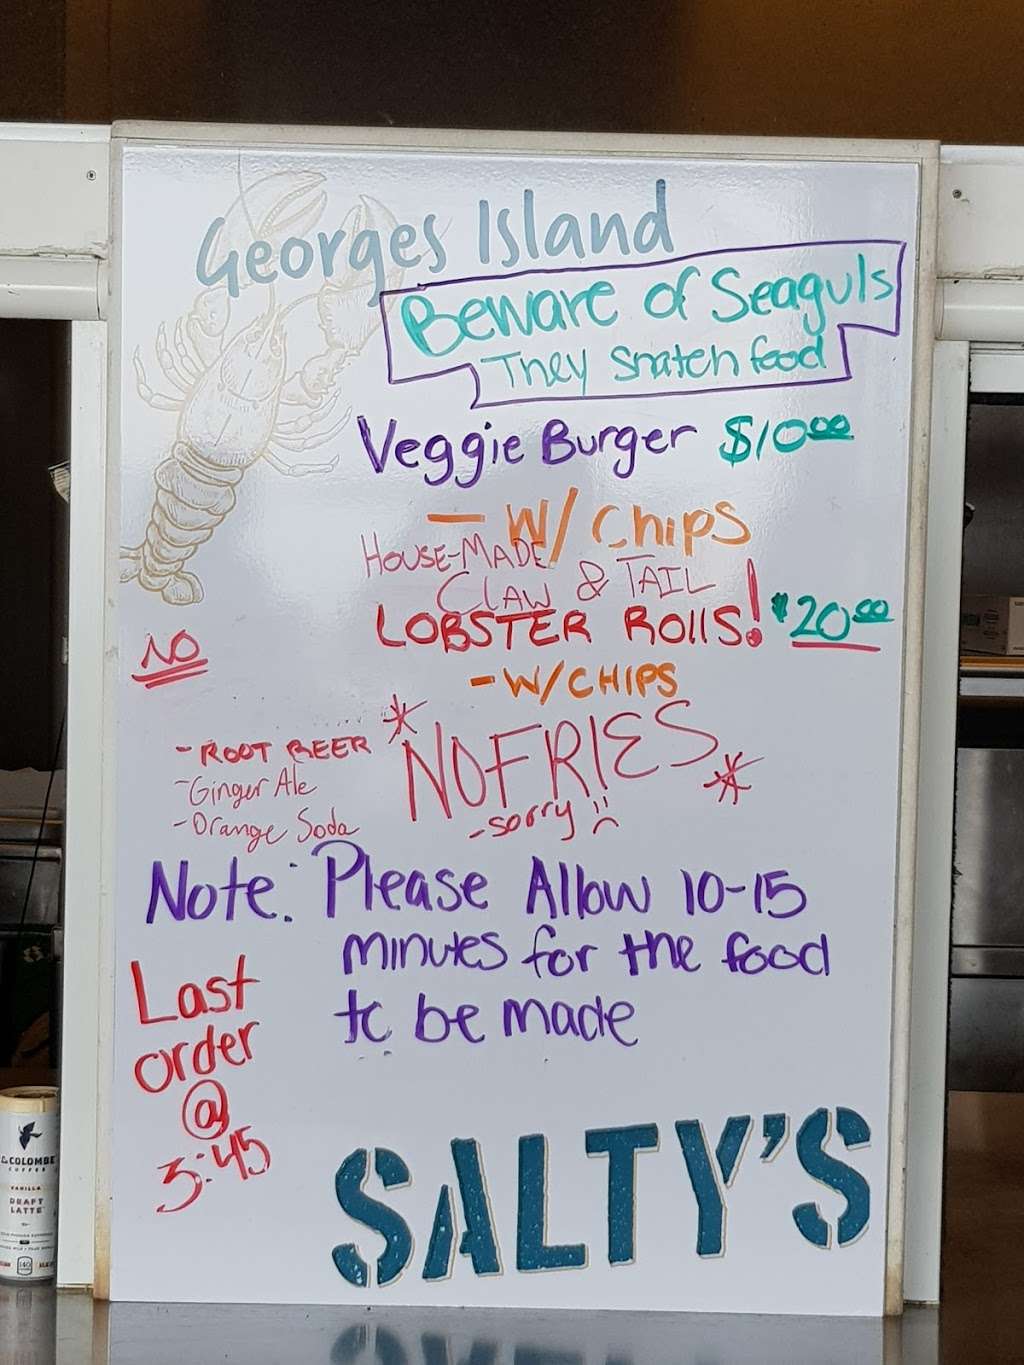 Georges Island
Beware of Seaguls
They snatch food
Veggie Burger $10.00
- W/ Chips
HOUSE-MADE
CLAW & TAIL
LOBSTER ROllS! $20.00
- W/CHIPS
NO
- ROOT BEER
- Ginger Ale
- Orange Soda
* NO FRIES *
- sorry :(
Note: Please Allow 10-15
minutes for the food
to be made
Last
order
@
3:45
SALTY'S
LA COLOMBE
COFFEE
VANILLA
DRAFT
LATTE